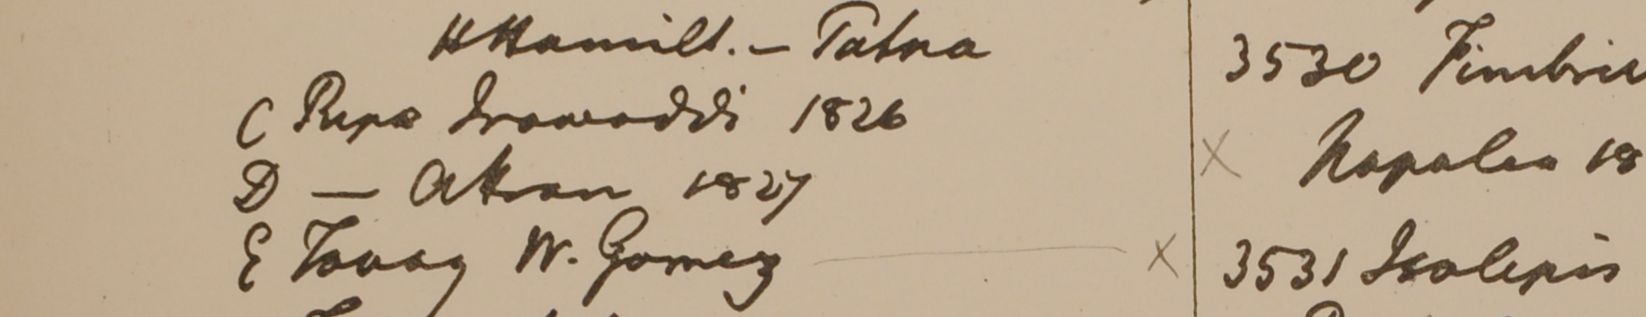 HHamilt. — Patna
C Ripæ Irawaddi 1826
D — Akran 1827
E Tavay W. Gomez
3530 Fimbris
Napalia 18
3531 Isolepis